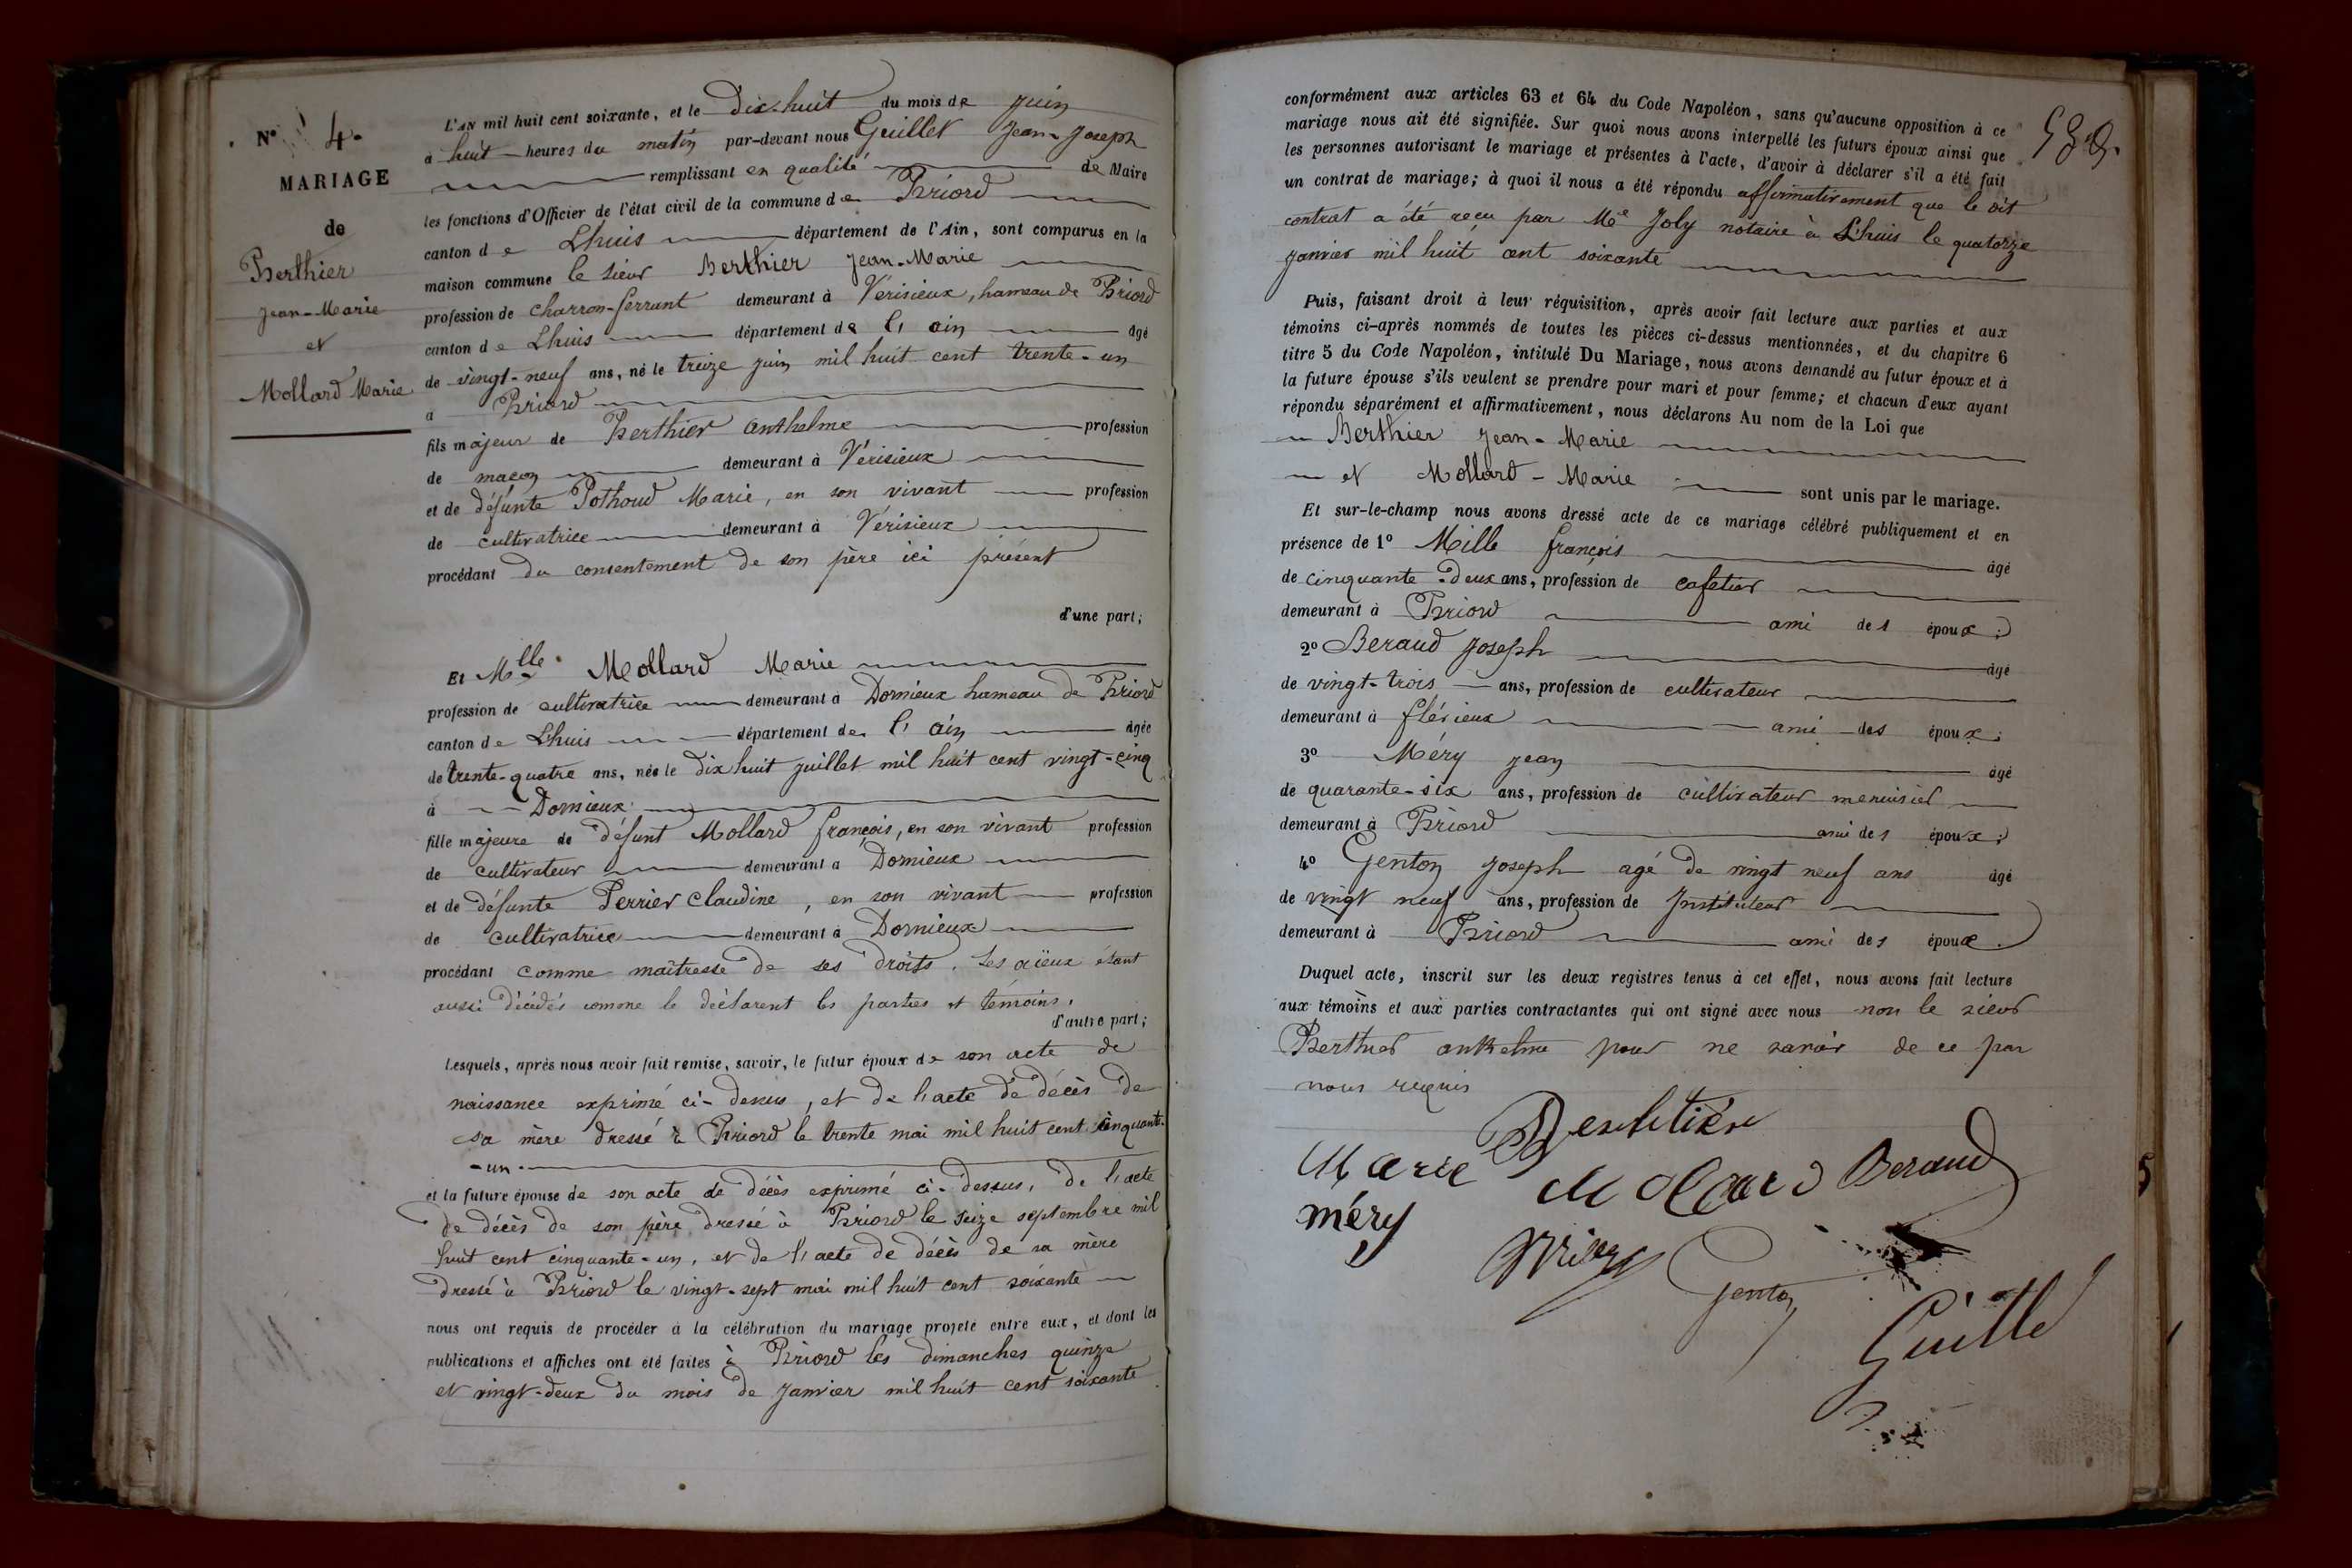 N° 4.
MARIAGE
de
Berthier
Jean-Marie
et
Mollard Marie
L'AN mil huit cent soixante, et le Dix-huit du mois de juin
à huit heures du matin par-devant nous Guillet Jean-Joseph
remplissant en qualité de Maire
les fonctions d'Officier de l'état civil de la commune de Briord
canton de Lhuis département de l'Ain, sont comparus en la
maison commune le sieur Berthier Jean-Marie
profession de charron-ferrant demeurant à Vérisieux, hameau de Briord
canton de Lhuis département de l'ain âgé
de vingt-neuf ans, né le treize juin mil huit cent trente-un
à Briord
fils majeur de Berthier Anthelme profession
de maçon demeurant à Vérisieux
et de défunte Pothoud Marie, en son vivant profession
de cultivatrice demeurant à Vérisieux
procédant du consentement de son père ici présent
d'une part;
Et Mlle Mollard Marie
profession de cultivatrice demeurant à Dornieux hameau de Briord
canton de Lhuis département de l'Ain âgée
de trente-quatre ans, née le dix huit juillet mil huit cent vingt-cinq
à Dornieux
fille majeure de défunt Mollard françois, en son vivant profession
de cultivateur demeurant à Dornieux
et de défunte Perrier Claudine, en son vivant profession
de cultivatrice demeurant à Dornieux
procédant comme maîtresse de ses droits. Ses aïeux étant
aussi décédés comme le déclarent les parties et témoins.
d'autre part;
Lesquels, après nous avoir fait remise, savoir, le futur époux de son acte de
naissance exprimé ci-dessus, et de l'acte de décès de
sa mère dressé à Briord le trente mai mil huit cent cinquante-
-un-
et la future épouse de son acte de décès exprimé ci-dessus, de l'acte
de décès de son père dressé à Briord le seize septembre mil
huit cent cinquante-un, et de l'acte de décès de sa mère
dressé à Briord le vingt-sept mai mil huit cent soixante
nous ont requis de procéder à la célébration du mariage projeté entre eux, et dont les
publications et affiches ont été faites à Briord les dimanches quinze
et vingt-deux du mois de janvier mil huit cent soixante
conformément aux articles 63 et 64 du Code Napoléon, sans qu'aucune opposition à ce
mariage nous ait été signifiée. Sur quoi nous avons interpellé les futurs époux ainsi que
les personnes autorisant le mariage et présentes à l'acte, d'avoir à déclarer s'il a été fait
un contrat de mariage; à quoi il nous a été répondu affirmativement que le dit
contrat a été reçu par Me Joly notaire à Lhuis le quatorze
janvier mil huit cent soixante
Puis, faisant droit à leur réquisition, après avoir fait lecture aux parties et aux
témoins ci-après nommés de toutes les pièces ci-dessus mentionnées, et du chapitre 6
titre 5 du Code Napoléon, intitulé Du Mariage, nous avons demandé au futur époux et à
la future épouse s'ils veulent se prendre pour mari et pour femme; et chacun d'eux ayant
répondu séparément et affirmativement, nous déclarons Au nom de la Loi que
Berthier Jean-Marie
et Mollard-Marie sont unis par le mariage.
Et sur-le-champ nous avons dressé acte de ce mariage célébré publiquement et en
présence de 1° Mille françois âgé
de cinquante-deux ans, profession de cafetier
demeurant à Briord ami des époux;
2° Beraud Joseph âgé
de vingt-trois ans, profession de cultivateur
demeurant à flérieux ami des époux;
3° Méry Jean âgé
de quarante-six ans, profession de cultivateur menuisier
demeurant à Briord ami des époux;
4° Genton Joseph agé de vingt neuf ans âgé
de vingt neuf ans, profession de Instituteur
demeurant à Briord ami des époux.
Duquel acte, inscrit sur les deux registres tenus à cet effet, nous avons fait lecture
aux témoins et aux parties contractantes qui ont signé avec nous non le sieur
Berthier anthelme pour ne savoir de ce par
nous requis
Marie Mollard Beraud
méry
Genton